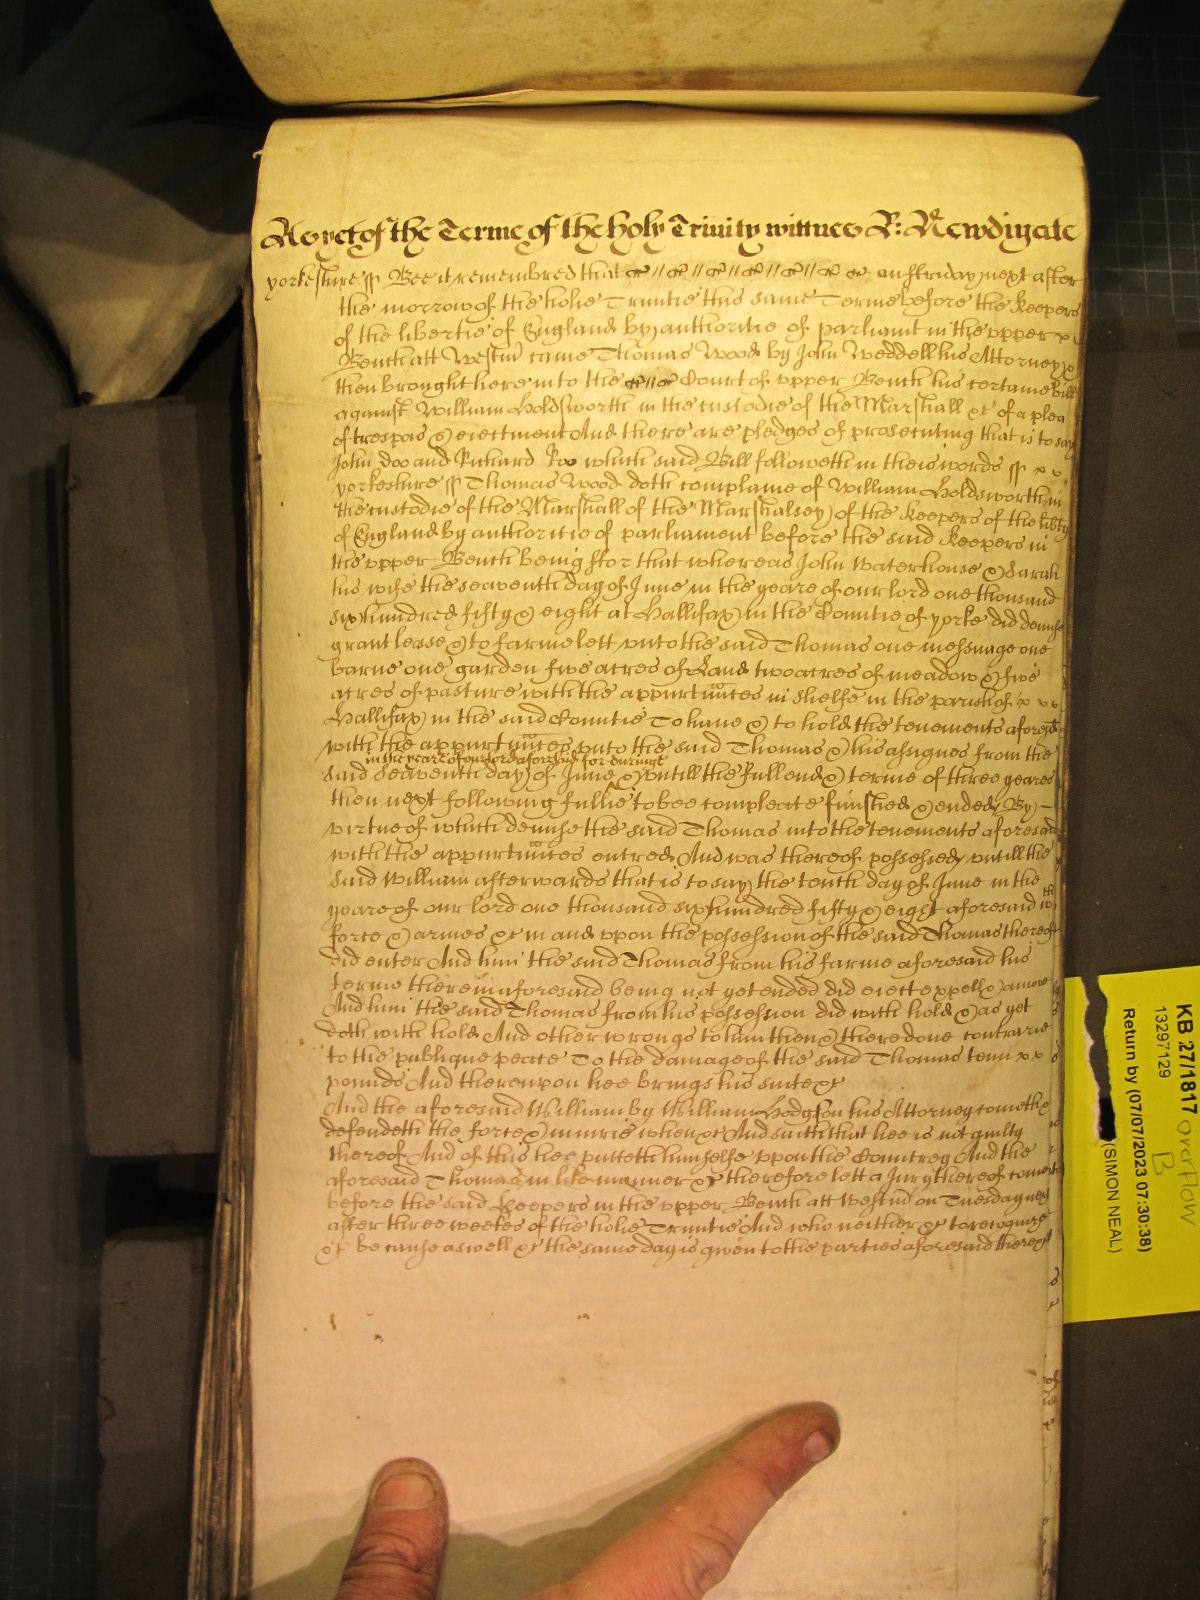 As yet of the Terme of the holy Trinity witnes R: Newdigate
yorkeshire ss Bee it remembred that on ffriday next after
the morrow of the holie Trinitie this same Terme before the Keepers
of the libertie of England by authoritie of parliamt in the vpper
Bench att Westm came Thomas Wood by John Weddell his Attorney &
then brought here into the Court of vpper Bench his certaine bill
against William Holdsworth in the custodie of the Marshall &c of a plea
of trespas & eiectment And there are pledges of prosecuting that is to say
John Doo and Richard Roo which said Bill followeth in theis words ss x x
yorkeshire ss Thomas Wood doth complaine of William Holdsworth in
the custodie of the Marshall of the Marshalsey of the Keepers of the libty
of England by authoritie of parliament before the said Keepers in
the vpper Bench being ffor that whereas John Waterhouse & Sarah
his wife the seaventh day of June in the yeare of our lord one thousand
six hundred fifty & eight at Hallifax in the Countie of yorke did demise
grant lease & to farme lett vnto the said Thomas one messuage one
barne one garden five acres of Land two acres of meadow & five
acres of pasture with the appurtnces in Shelfe in the parish of x x x
Hallifax in the said Countie To haue & to hold the tenements aforesd
with the appurtnces vnto the said Thomas & his assignes from the
in the yeare of our lord aforesaid for & during
said seaventh day of June & vntill the full end & terme of three yeares
then next following fullie to bee compleate finished & ended By
virtue of which demise the said Thomas into the tenements aforesaid
with the appurtnces entred And was thereof possessed vntill the
said William afterwards that is to say the tenth day of June in the
yeare of our lord one thousand six hundred fifty & eight aforesaid wth
force & armes &c in and vpon the possession of the said Thomas thereof
did enter And him the said Thomas from his farme aforesaid his
terme therein aforesaid being not yet ended did eiect expell & amove
And him the said Thomas from his possession did with hold & as yet
doth with hold And other wrongs to him then & there done contrarie
to the publique peace To the damage of the said Thomas tenn x x
pounds And therevpon hee brings his suite &c
And the aforesaid William by William Hodgson his Attorney cometh &
defendeth the force & iniurie when &c And saith that hee is not guilty
thereof And of this hee putteth himselfe vpon the Countrey And the
aforesaid Thomas in like manner &c therefore lett a Jury thereof come
before the said Keepers in the vpper Bench att Westm on Tuesday next
after three weekes of the holie Trinitie And who neither &c to recognize
&c because aswell &c the same day is given to the parties aforesaid there &c
KB 27/1817
overflow
B
13297129
Return by (07/07/2023 07:30:38)
(SIMON NEAL)